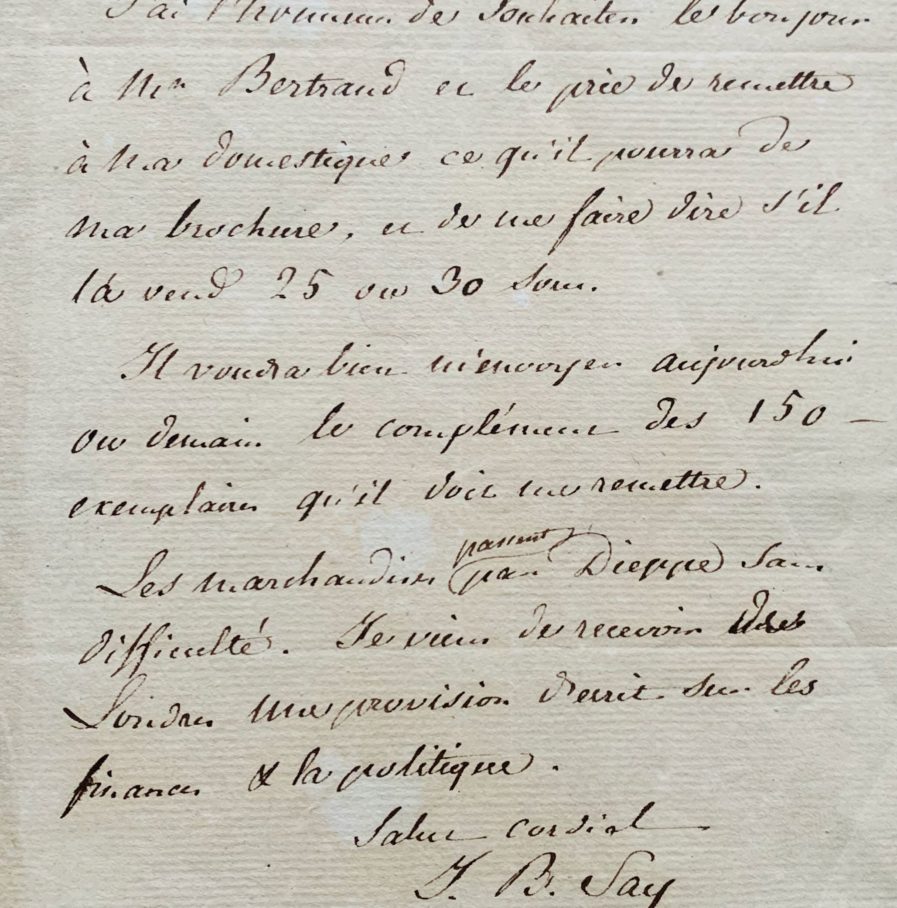 J'ai l'honneur de souhaiter le bonjour
à Mr Bertrand et le prie de remettre
à ma domestique ce qu'il pourra de
ma brochure, et de me faire dire s'il
la vend 25 ou 30 sous.
Il voudra bien m'envoyer aujourdhui
ou demain le complément des 150 –
exemplaires qu'il doit me remettre.
Les marchandises passent par Dieppe sans
difficulté. Je viens de recevoir de
Londres une provision d'ecrits sur les
finances & la politique.
Salut cordial
J. B. Say